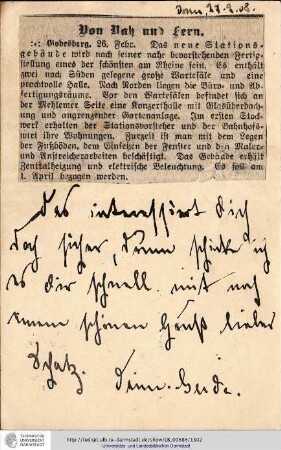 Bonn, 27.2.08.
Von Nah und Fern.
:-: Godesberg, 26. Febr. Das neue Stations-
gebäude wird nach seiner nahe bevorstehenden Fertig-
stellung eines der schönsten am Rheine sein. Es enthält
zwei nach Süden gelegene große Wartesäle und eine
prachtvolle Halle. Nach Norden liegen die Büro- und Ab-
fertigungsräume. Vor den Wartesälen befindet sich an
der Mehlemer Seite eine Konzerthalle mit Glasüberdach-
ung und angrenzender Gartenanlage. Im ersten Stock-
werk erhalten der Stationsvorsteher und der Bahnhofs-
wirt ihre Wohnungen. Kurzeit ist man mit dem Legen
der Fußböden, dem Einsetzen der Fenster und den Maler-
und Anstreicherarbeiten beschäftigt. Das Gebäude erhält
Zentralheizung und elektrische Beleuchtung. Es soll am
1. April bezogen werden.
Das interessiert Dich
doch sicher, drum schicke ich
es Dir schnell mit noch
einem schönen Gruß lieber
Schatz.
Deine
TECHNISCHE
UNIVERSITÄT
DARMSTADT
http://tudigit.ulb.tu-darmstadt.de/show/
Universitäts- und Landesbibliothek Darmstadt